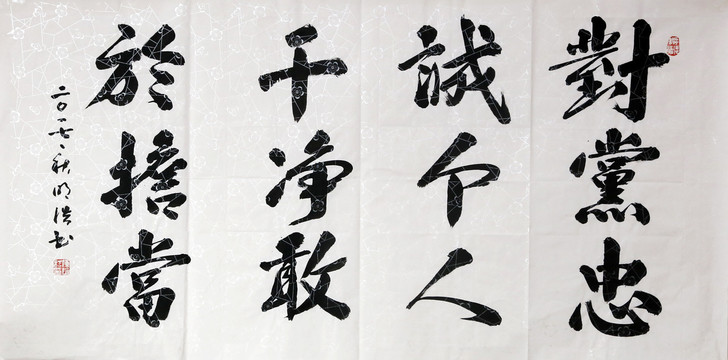 對黨忠
誠个人
干净敢
於擔當
二〇一七、秋明浩书